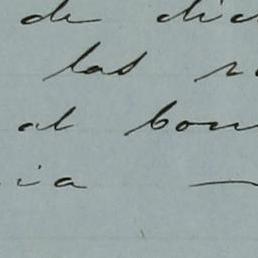 de dic
las
al bou
ia —